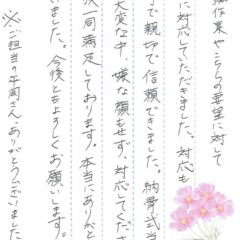 作業やこちらの要望に対して
に対応していただきました。対応も
で親切で信頼できました。納骨式当
大変な中、嫌な顔もせず、対応してくださ
一同満足しております。本当にありがと
いました。今後ともよろしくお願いします。
※ご担当の平岡さん、ありがとうございました